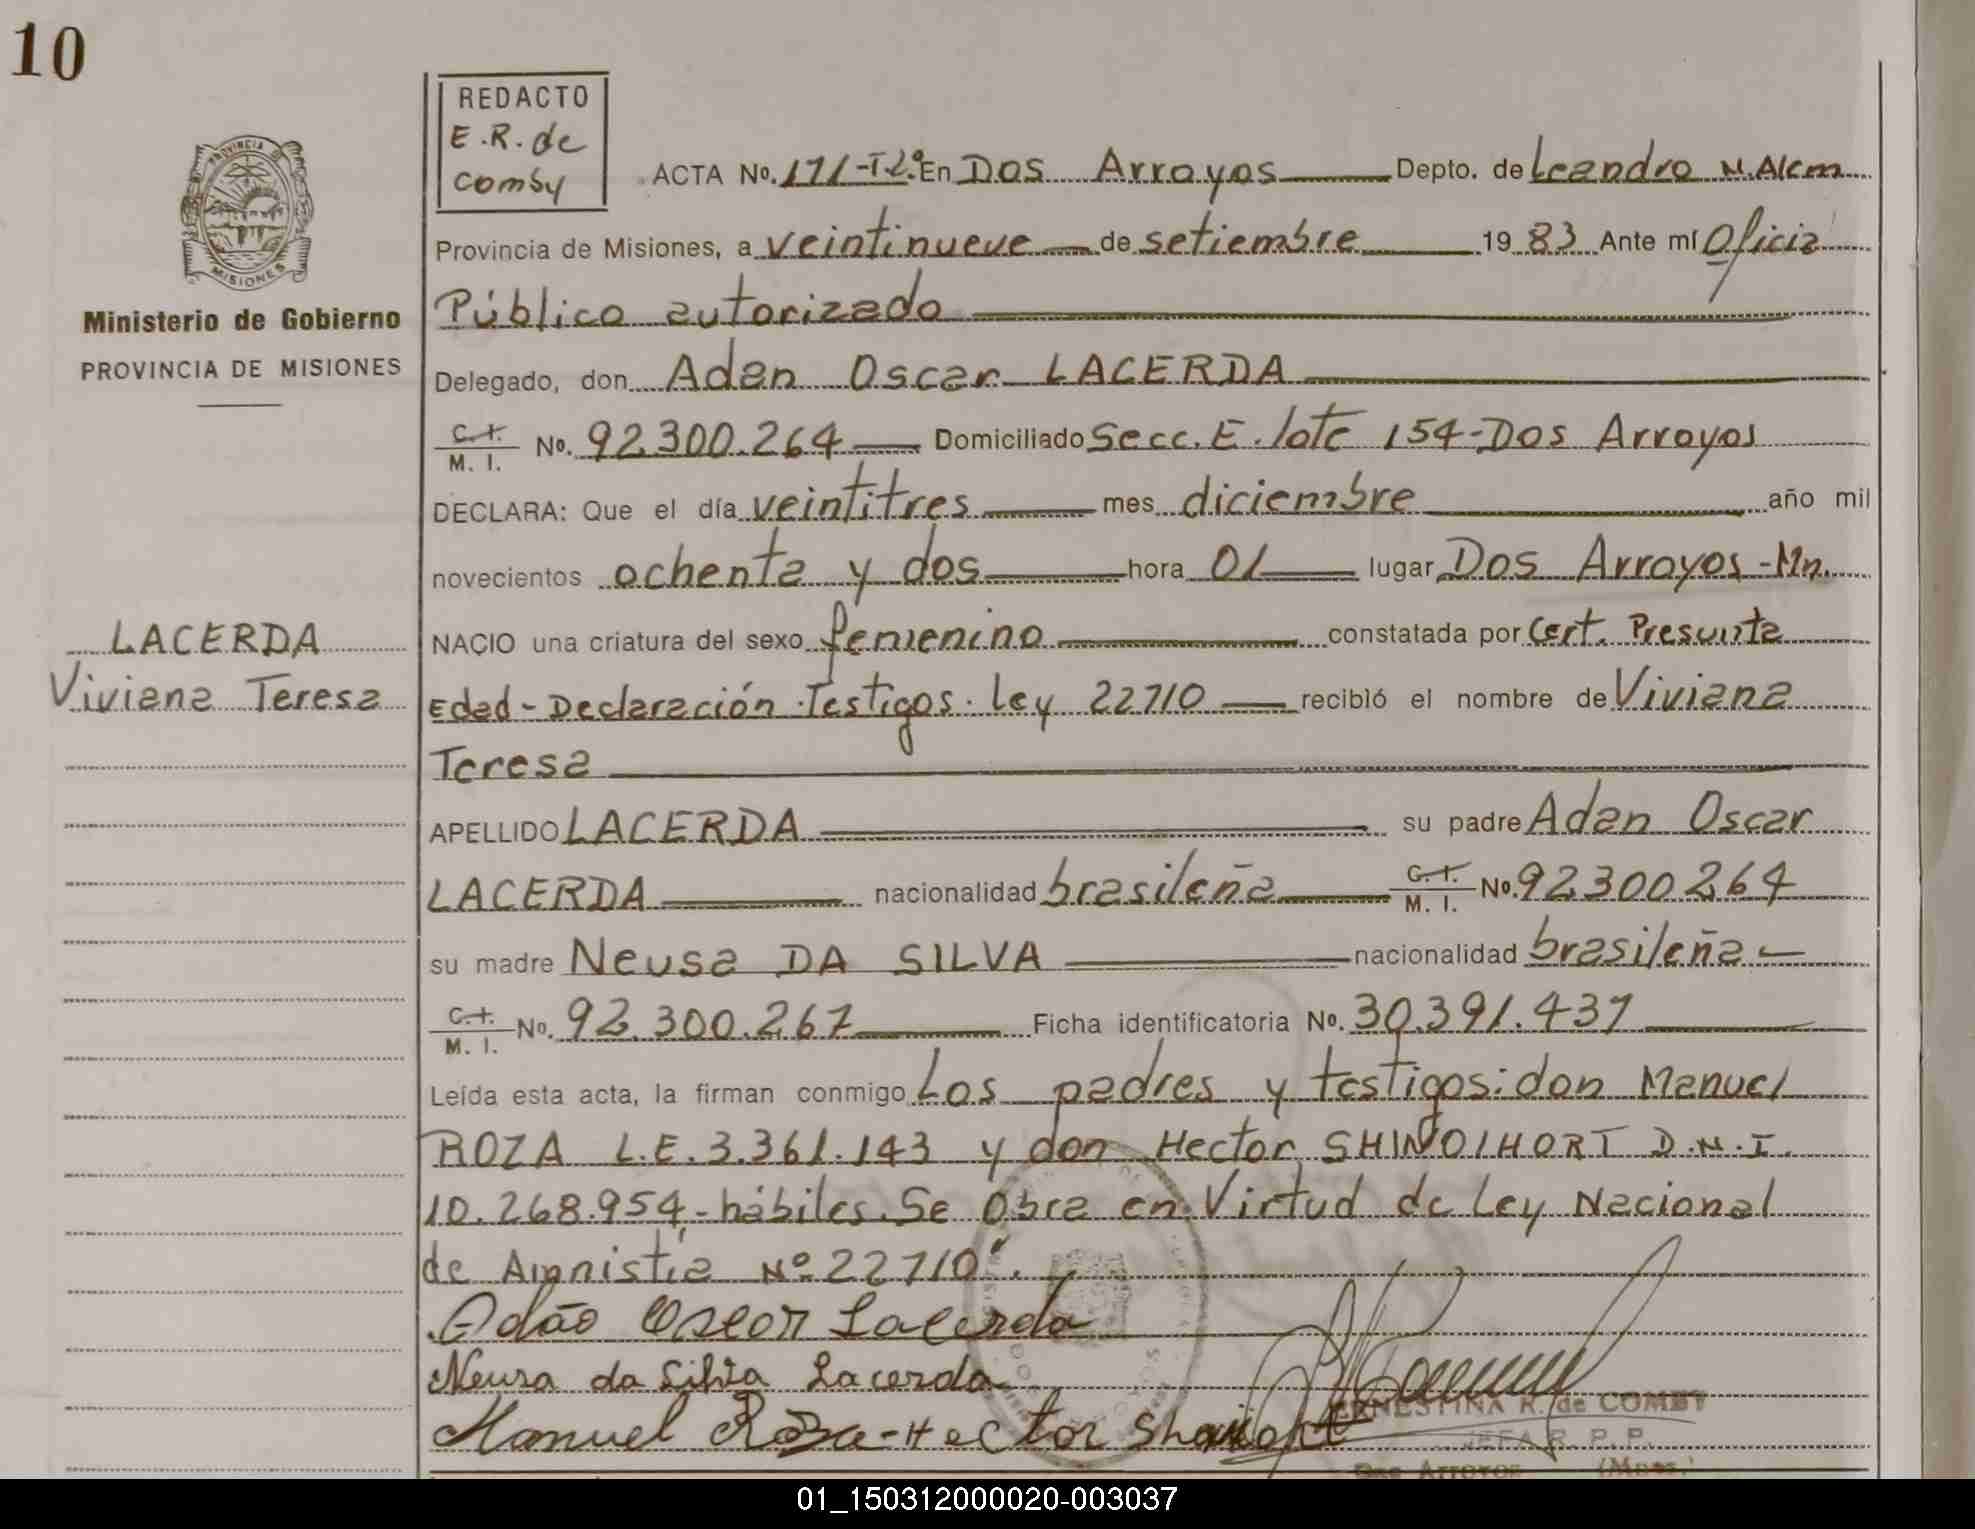 10
REDACTO
E.R. de
comby
PROVINCIA DE
MISIONES
Ministerio de Gobierno
PROVINCIA DE MISIONES
ACTA No. 171-T2º En Dos Arroyos Depto. de Leandro N. Alem
Provincia de Misiones, a veintinueve de setiembre 1983 Ante mí Oficial
Público autorizado
Delegado, don Adan Oscar LACERDA
C.I. M. I. No. 92.300.264 Domiciliado Secc. E. lote 154-Dos Arroyos
DECLARA: Que el día veintitres mes diciembre año mil
novecientos ochenta y dos hora 01 lugar Dos Arroyos-Mn.
LACERDA
Viviana Teresa
NACIO una criatura del sexo femenino constatada por Cert. Presunta
Edad - Declaración Testigos. Ley 22710 recibió el nombre de Viviana
Teresa
APELLIDO LACERDA su padre Adan Oscar
LACERDA nacionalidad brasileña C.I. M. I. No. 92300264
su madre Neusa DA SILVA nacionalidad brasileña
C.I. M. I. No. 92.300.267 Ficha identificatoria No. 30.391.437
Leída esta acta, la firman conmigo Los padres y testigos: don Manuel
ROZA L.E. 3.361.143 y don Hector SHINOIHORT D.N.I.
10.268.954,- hábiles. Se Obra en Virtud de Ley Nacional
de Amnistia Nº 22710".
Adão Oscar Lacerda
Neusa da Silva Lacerda
Manuel Roza - Hector
ERNESTINA R. de COMBY
JEFA R. P. P.
Dos Arroyos (Mnes.)
01_150312000020-003037